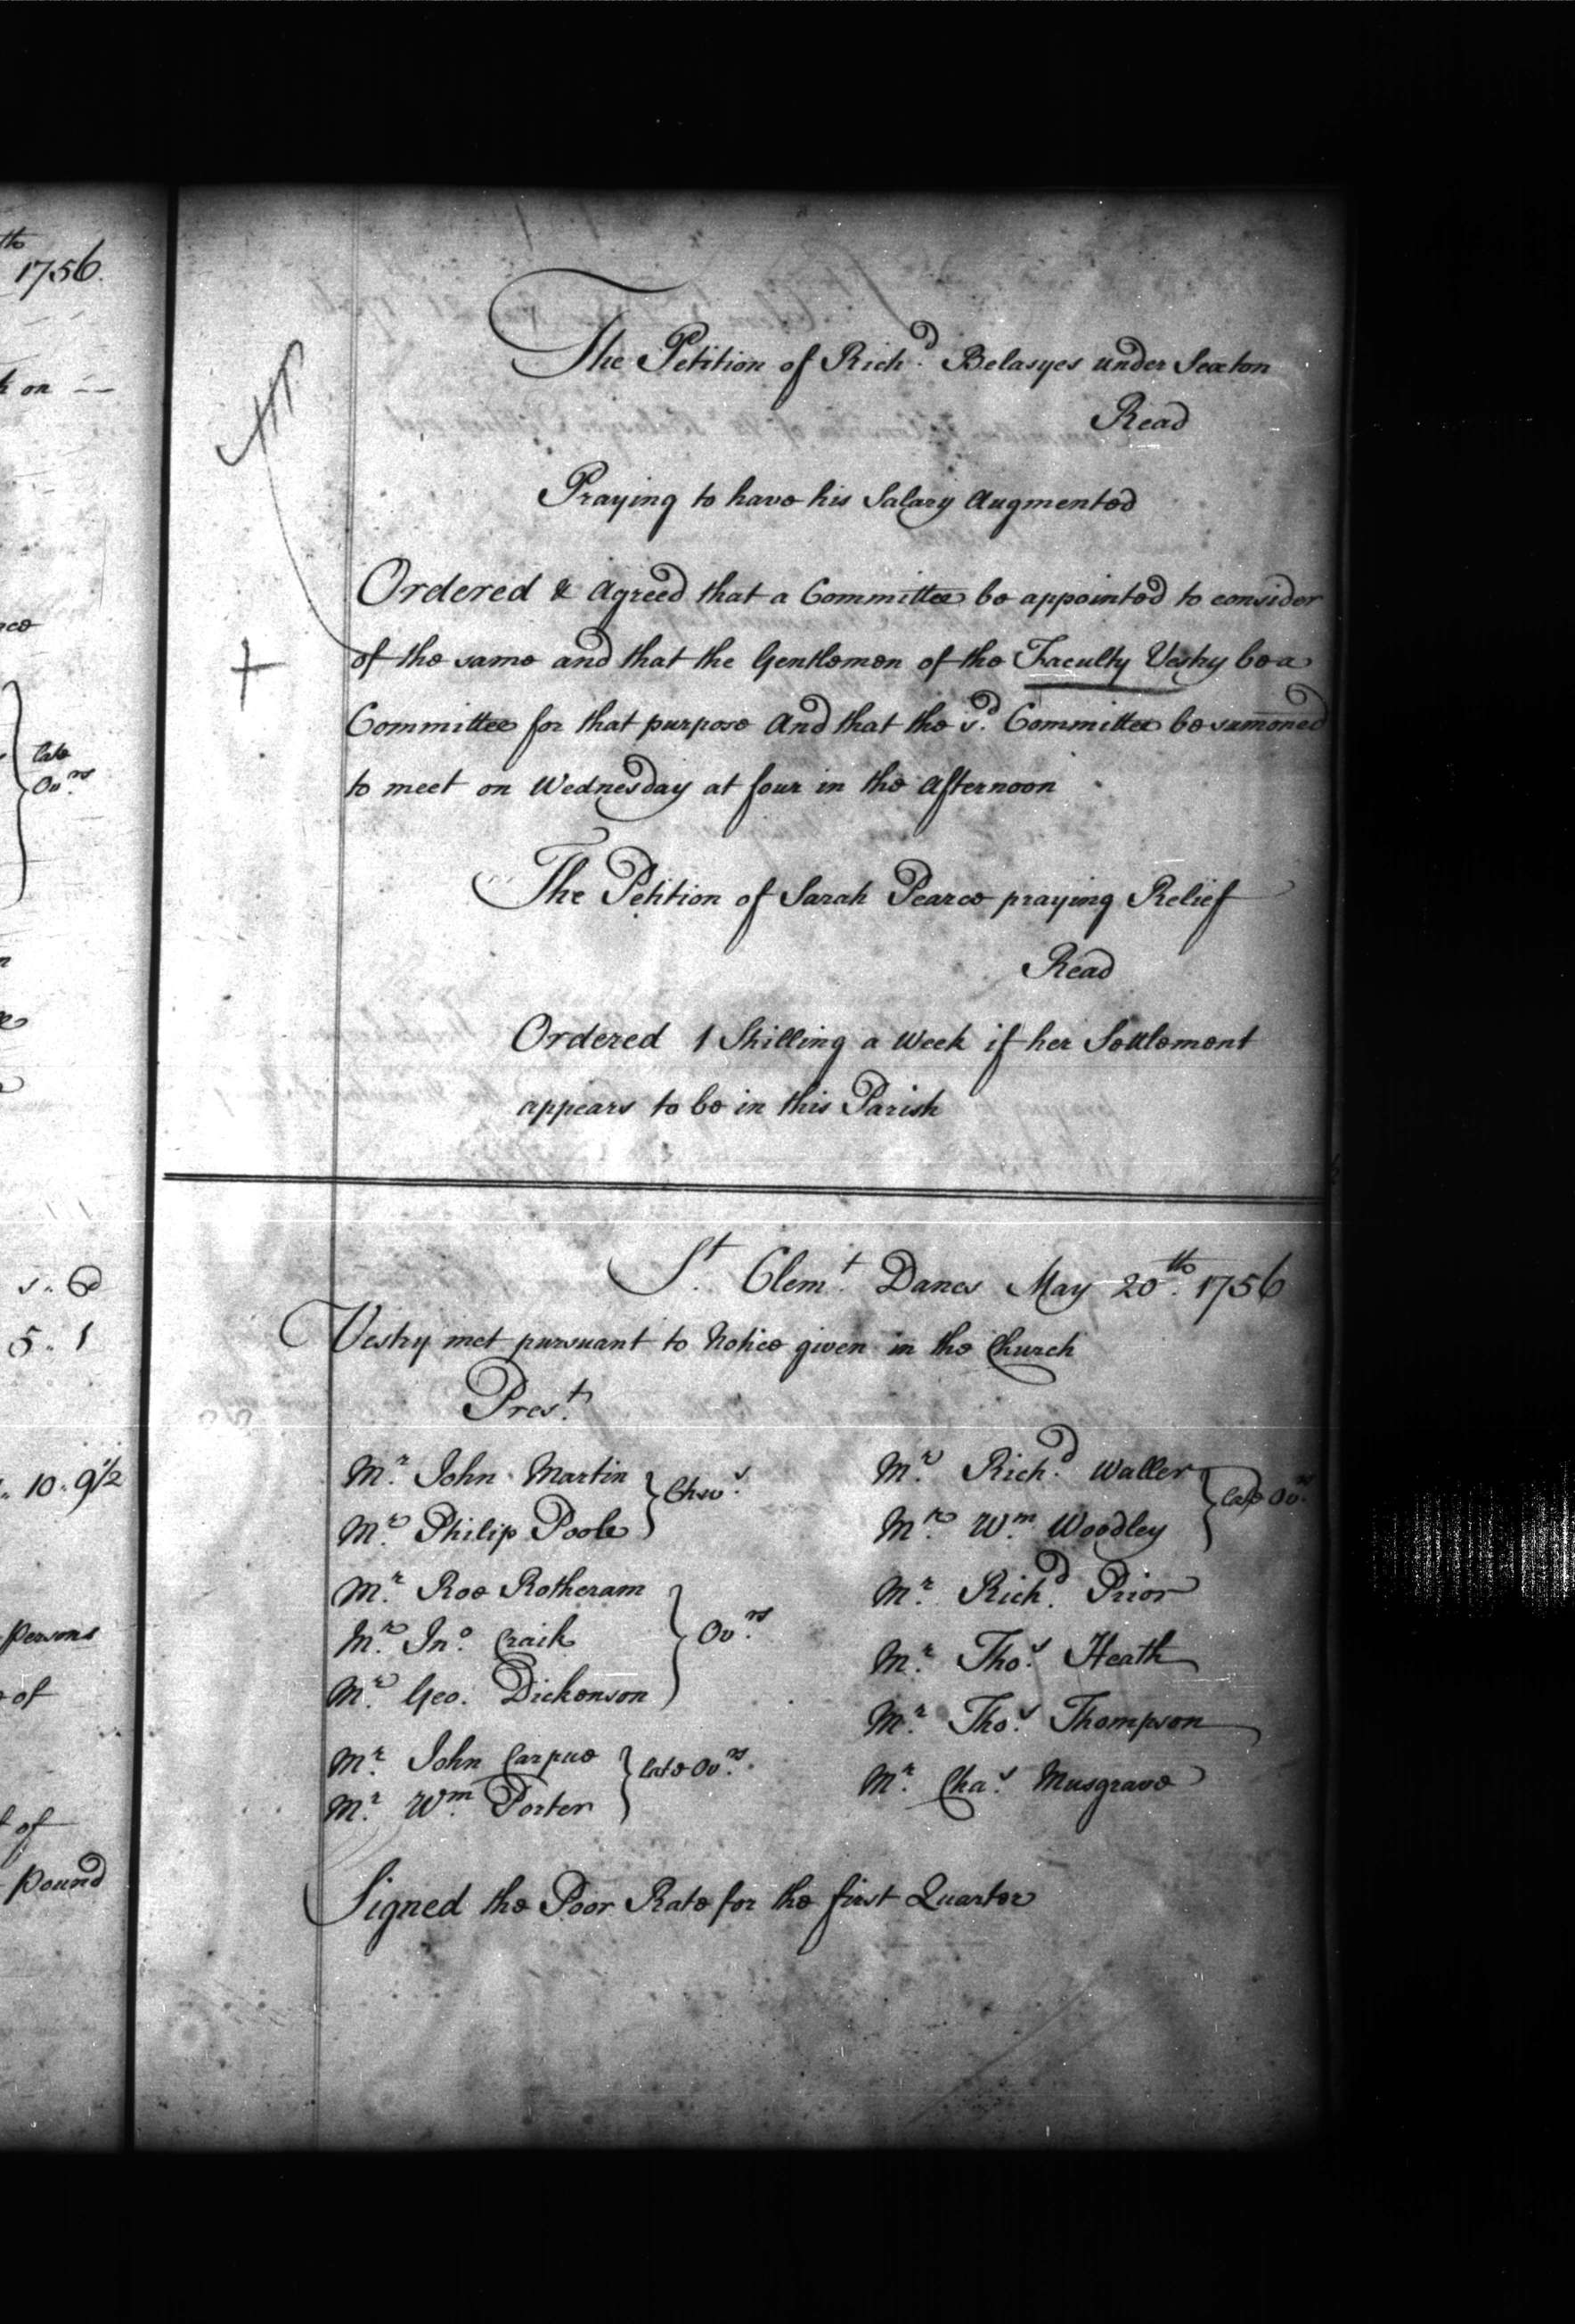 th
1756.
on
late
Ovrs
5 . 1
10 . 9½
Persons
of
of
Pound
The Petition of Richd. Belasyes under Sexton
Read
Praying to have his Salary Augmented
Ordered & Agreed that a Committee be appointed to consider
of the same and that the Gentlemen of the Faculty Vestry be a
Committee for that purpose And that the sd. Committee be sumoned
to meet on Wednesday at four in the Afternoon
The Petition of Sarah Pearce praying Relief
Read
Ordered 1 Shilling a Week if her Settlement
appears to be in this Parish
St. Clemt. Danes May 20th. 1756
Vestry met pursuant to Notice given in the Church
Prest.
Mr. John Martin
Mr. Philip Poole
Chws.
Mr. Roe Rotheram
Mr. Jno. Craik
Mr. Geo. Dickenson
Ovrs.
Mr. John Carpue
Mr. Wm. Porter
late Ovrs.
Mr. Richd. Waller
Mr. Wm. Woodley
late Ovrs.
Mr. Richd. Prior
Mr. Thos. Heath
Mr. Thos. Thompson
Mr. Chas. Musgrave
Signed the Poor Rate for the first Quarter